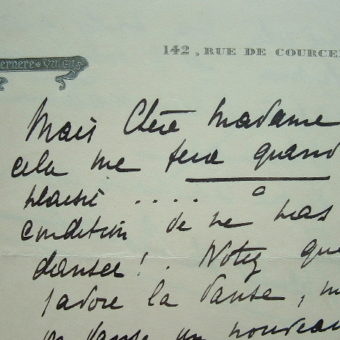 142, RUE DE COURCE
Mais Chère Madame
cela me fera quand
plaisir .... à
condition de ne pas
danser! . Notez que
j'adore la danse, m
on danse un nouveau